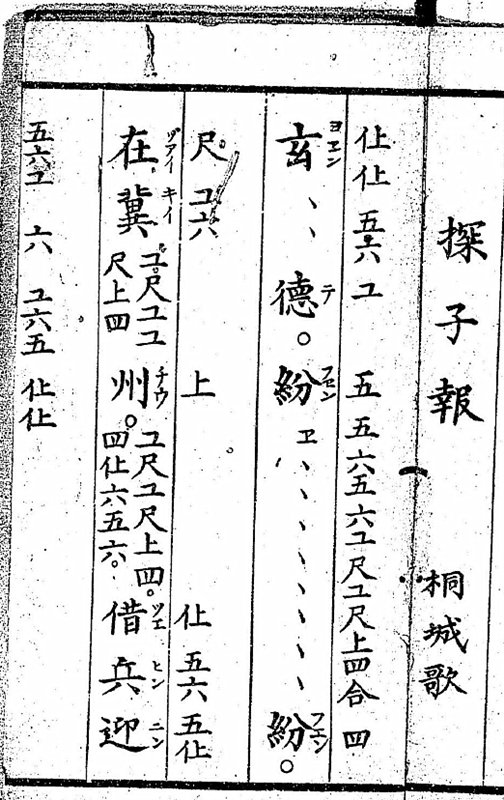 探子報 桐城歌
仩仩五六コ 五五六五六コ尺コ尺上四合四
玄ヨエン 、、德テ。紛フエン ヱ、、、、、、、、紛フエン。
尺コ六 上 仩五六五仩
在ヅアイ冀キイ コ尺ココ 尺上四 州チウ。 コ尺コ尺上四。 四仩六五六。 借ツエ兵ヒン迎ニン
五六コ 六 コ六五仩仩